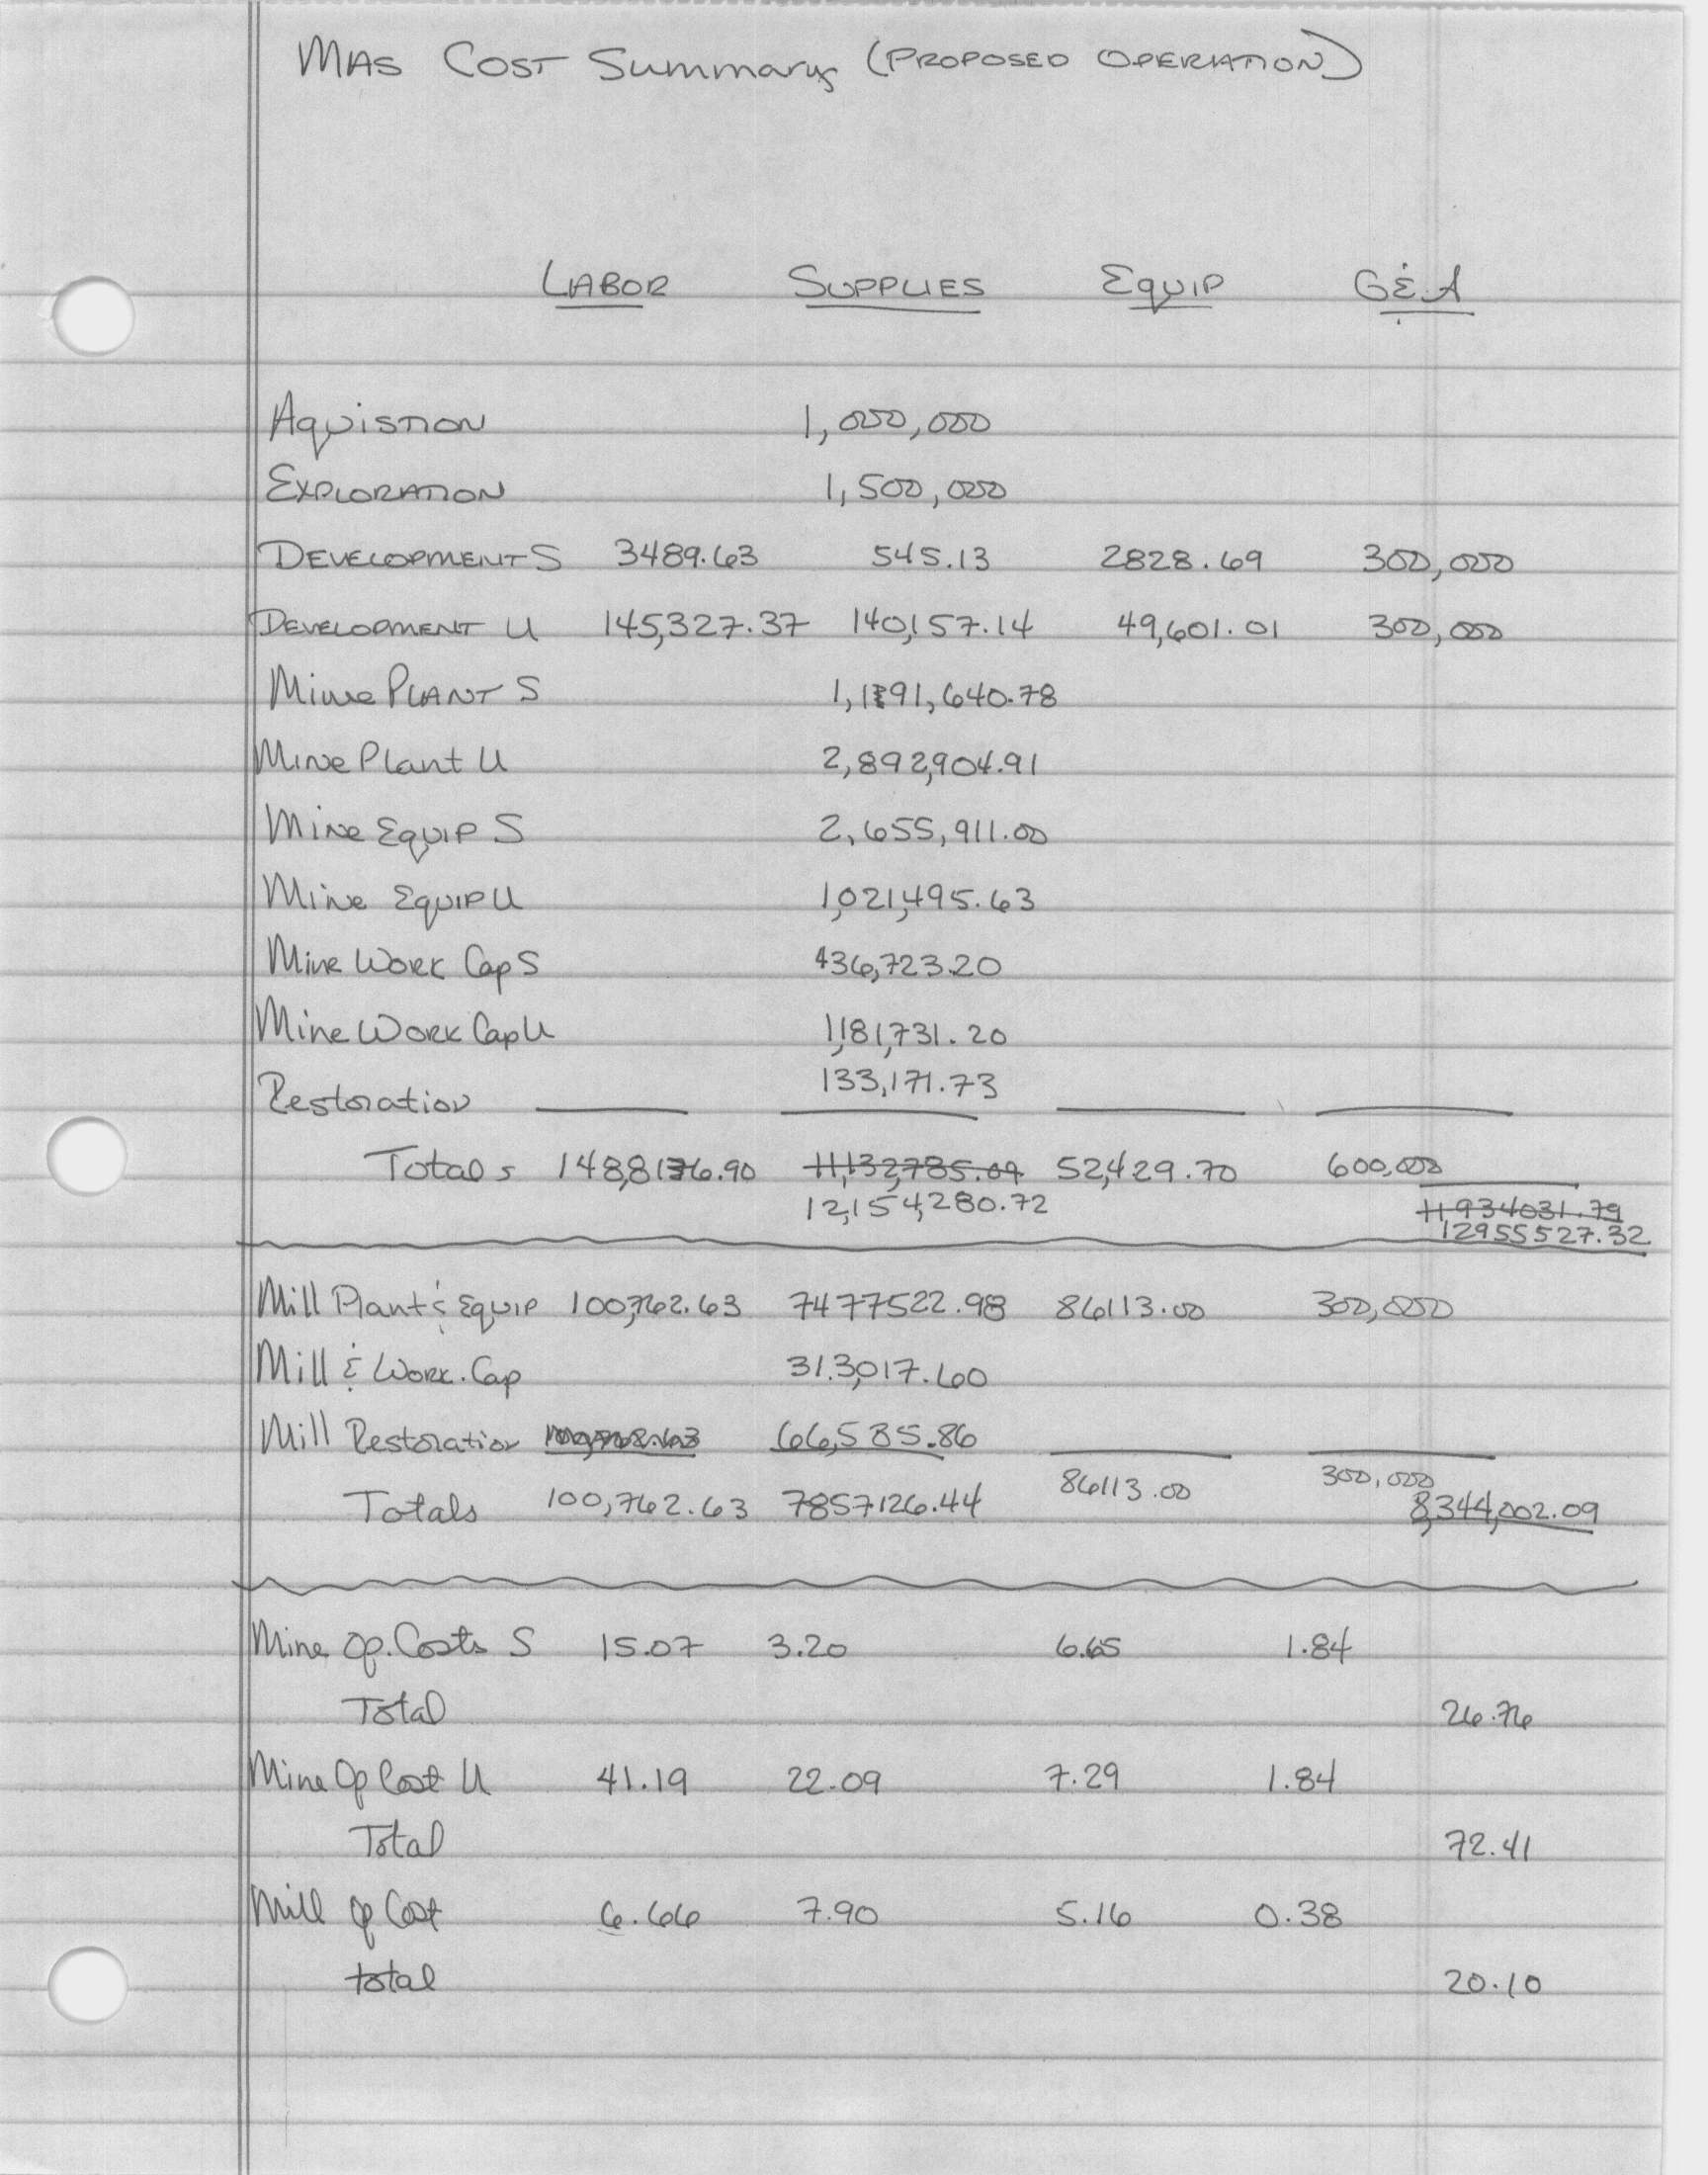 MAS COST Summary (PROPOSED OPERATION)
LABOR SUPPLIES EQUIP G&A
AQUISTION 1,000,000
EXPLORATION 1,500,000
DEVELOPMENT S 3489.63 545.13 2828.69 300,000
DEVELOPMENT U 145,327.37 140,157.14 49,601.01 300,000
Mine PLANT S 1,191,640.78
Mine Plant U 2,892,904.91
Mine Equip S 2,655,911.00
Mine EQUIP U 1,021,495.63
Mine Work Cap S 436,723.20
Mine Work Cap U 1,181,731.20
Restoration 133,171.73
Totals 148,816.90 11,132,785.09 52,429.70 600,000
12,154,280.72 11934031.79
12955527.32
Mill Plant & Equip 100,762.63 7477522.98 86113.00 300,000
Mill & Work. Cap 313,017.60
Mill Restoration 66,585.86
Totals 100,762.63 7857126.44 86113.00 300,000
8,344,002.09
Mine Op. Costs S 15.07 3.20 6.65 1.84
Total 26.76
Mine Op Cost U 41.19 22.09 7.29 1.84
Total 72.41
Mill Op Cost 6.66 7.90 5.16 0.38
total 20.10